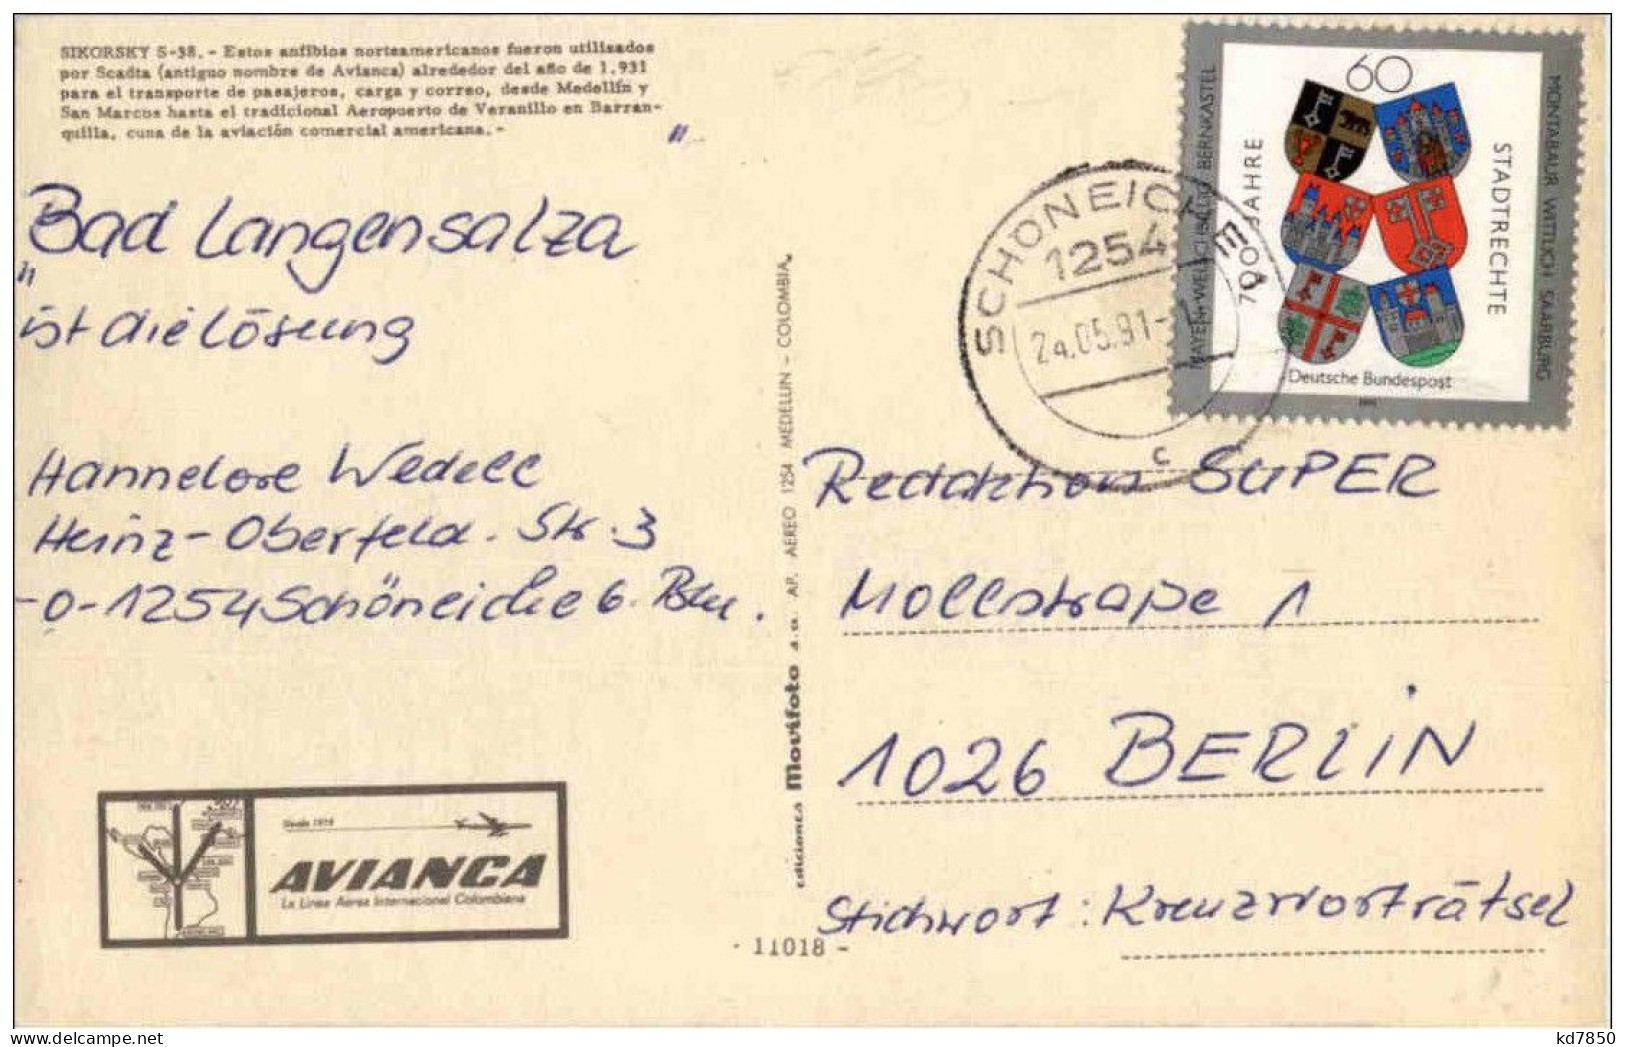 SIKORSKY S-38. - Estos anfibios norteamericanos fueron utilisados
por Scadta (antiguo nombre de Avianca) alrededor del año de 1.931
para el transporte de pasajeros, carga y correo, desde Medellín y
San Marcos hasta el tradicional Aeropuerto de Veranillo en Barran-
quilla, cuna de la aviación comercial americana. -
Bad Langensalza
"
ist die Lösung
Hannelore Wedell
Heinz-Oberfeld. Str. 3
-O-1254 Schöneiche b. Bln.
Desde 1919
AVIANCA
La Linea Aerea Internacional Colombiana
ediciones Movifoto s.a. AP. AEREO 1254 MEDELLIN - COLOMBIA.
- 11018 -
SCHÖNEICHE
1254
24.05.91
c
60
700 JAHRE
STADTRECHTE
MONTABAUR WITTLICH SAARBURG
Deutsche Bundespost
1991
Redaktion SUPER
Mollstraße 1
1026 BERLIN
Stichwort: Kreuzworträtsel
kd7850